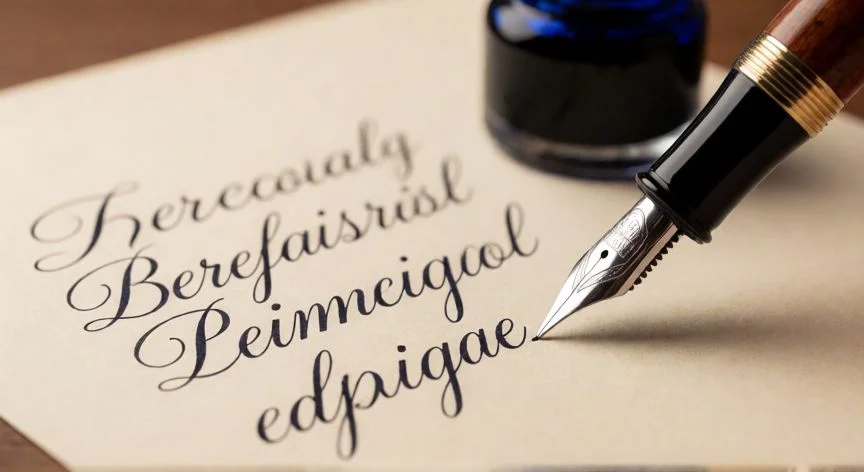 Herecoralg
Berefaisrisl
Peinmcigcol
edpigae